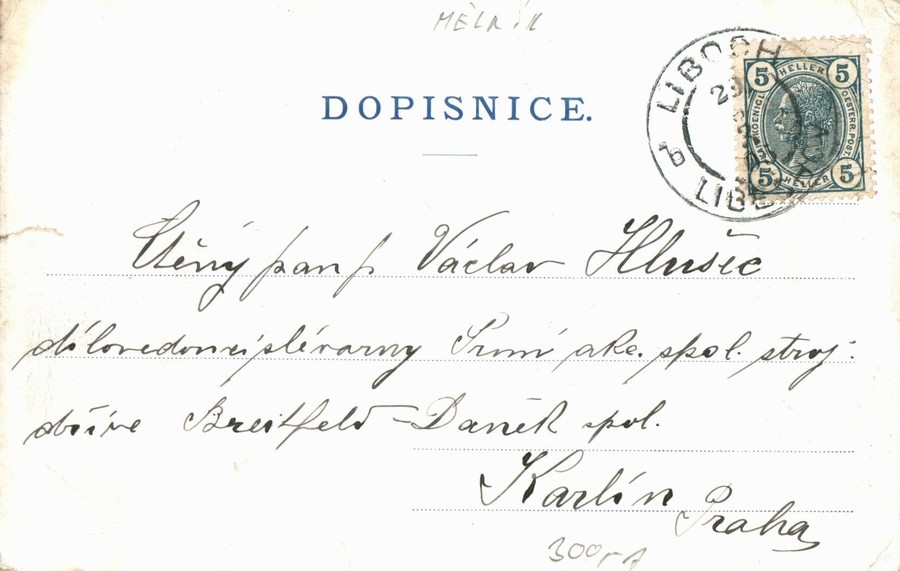 MĚLNÍK
DOPISNICE.
LIBOCH
LIBĚ
b
29
5 HELLER 5
KAIS. KOENIGL. OESTERR. POST.
5 HELLER 5
Ctěný pan p Václav Hlušec
dílovedoucí slévarny Prvni akc. spol. stroj.
dříve Breitfeld-Daněk spol.
Karlín Praha
300,-